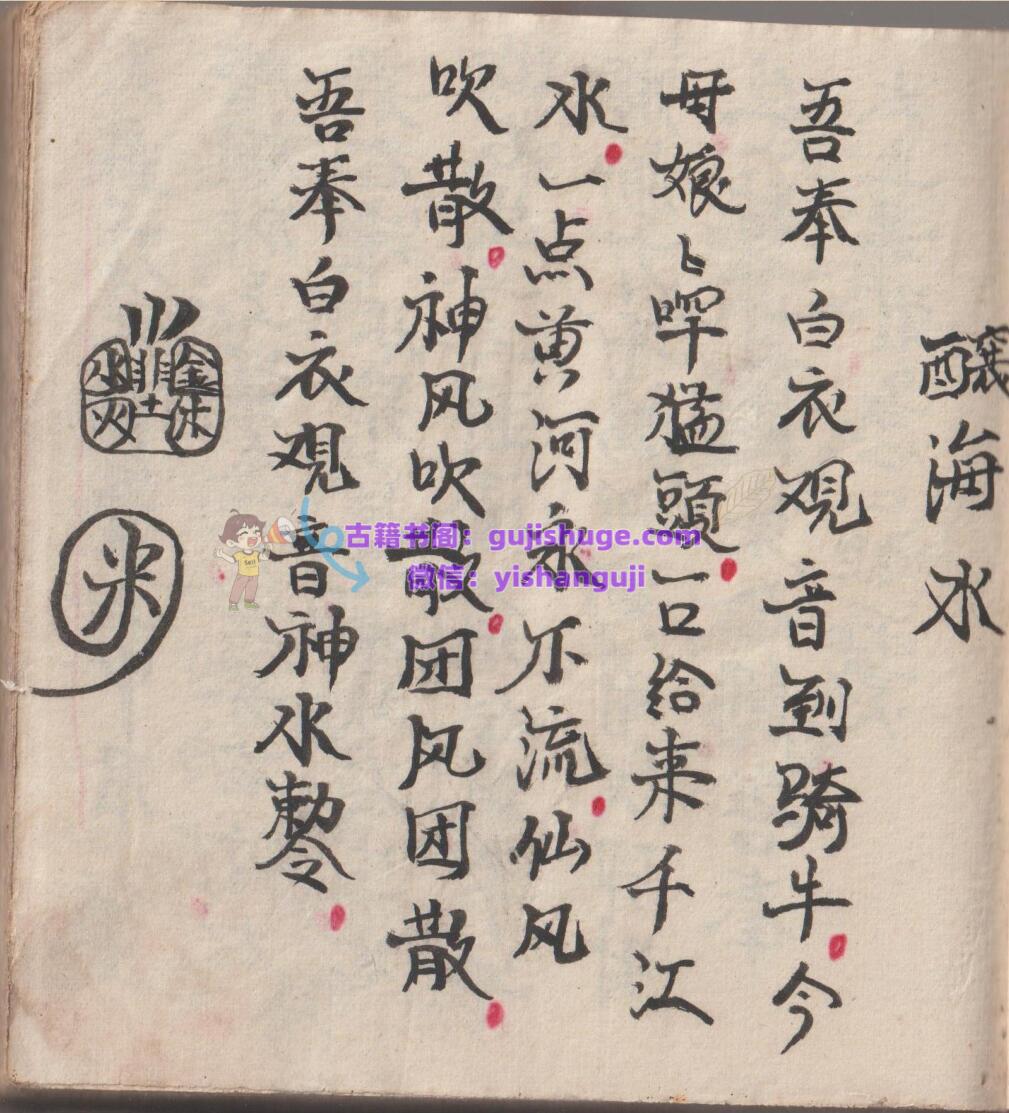 醸海水
吾奉白衣观音到骑牛今
母娘〻啴猛頭一口给来千江
水一点黄河永不流仙风
吹散神风吹散团风团散
吾奉白衣观音神水勅令
金木水火土
米
古籍书阁:gujishuge.com
微信:yishanguji